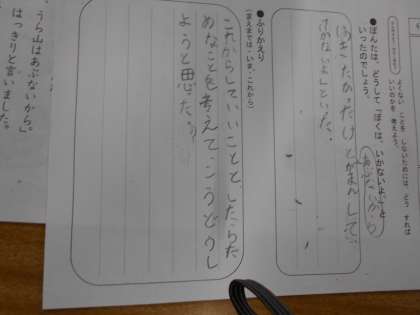 よくない ことを しないためには、どう すれば
いいのかを 考えよう。
●ぽんたは、どうして「ぼくは、いかないよ。」と
いったのでしょう。
あぶないから
いきたかったけどがまんして、
いかないよといった。
●ふりかえり
(まえまでは・いま・これから)
これからしていいことと、したらだ
めなことを考えてこうどうし
ようと思った。
うら山はあぶないから。」
はっきりと言いました。